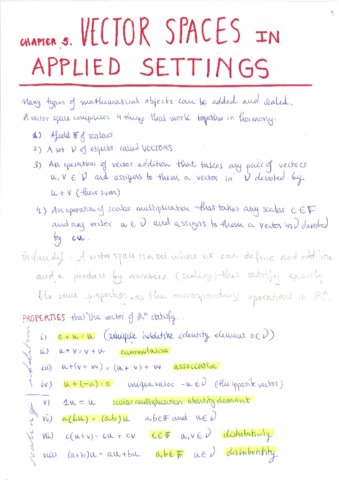 CHAPTER 5. VECTOR SPACES IN
APPLIED SETTINGS
Many types of mathematical objects can be added and scaled.
A vector space comprises 4 things that work together in harmony:
1) A field F of scalars
2) A set V of objects called VECTORS
3) An operation of vector addition that takes any pair of vectors
u, v ∈ V and assigns to them a vector in V denoted by
u + v (their sum)
4) An operation of scalar multiplication that takes any scalar c ∈ F
and any vector u ∈ V and assigns to them a vector in V denoted
by cu.
A vector space is a set where we can define and addition
and a product by numbers (scaling) that satisfy exactly
the same properties as the corresponding operations in ℝⁿ.
PROPERTIES that the vector of ℝⁿ satisfy
addition
i) 0 + u = u (unique additive identity element 0 ∈ V)
ii) u + v = v + u commutative
iii) u + (v + w) = (u + v) + w associative
iv) u + (-u) = 0 unique vector -u ∈ V (the opposite vector)
scaling
v) 1u = u scalar multiplication identity element
vi) a(bu) = (ab)u a,b ∈ F and u ∈ V
vii) c(u+v) = cu + cv c ∈ F u,v ∈ V distributivity
viii) (a+b)u = au + bu a,b ∈ F u ∈ V distributivity